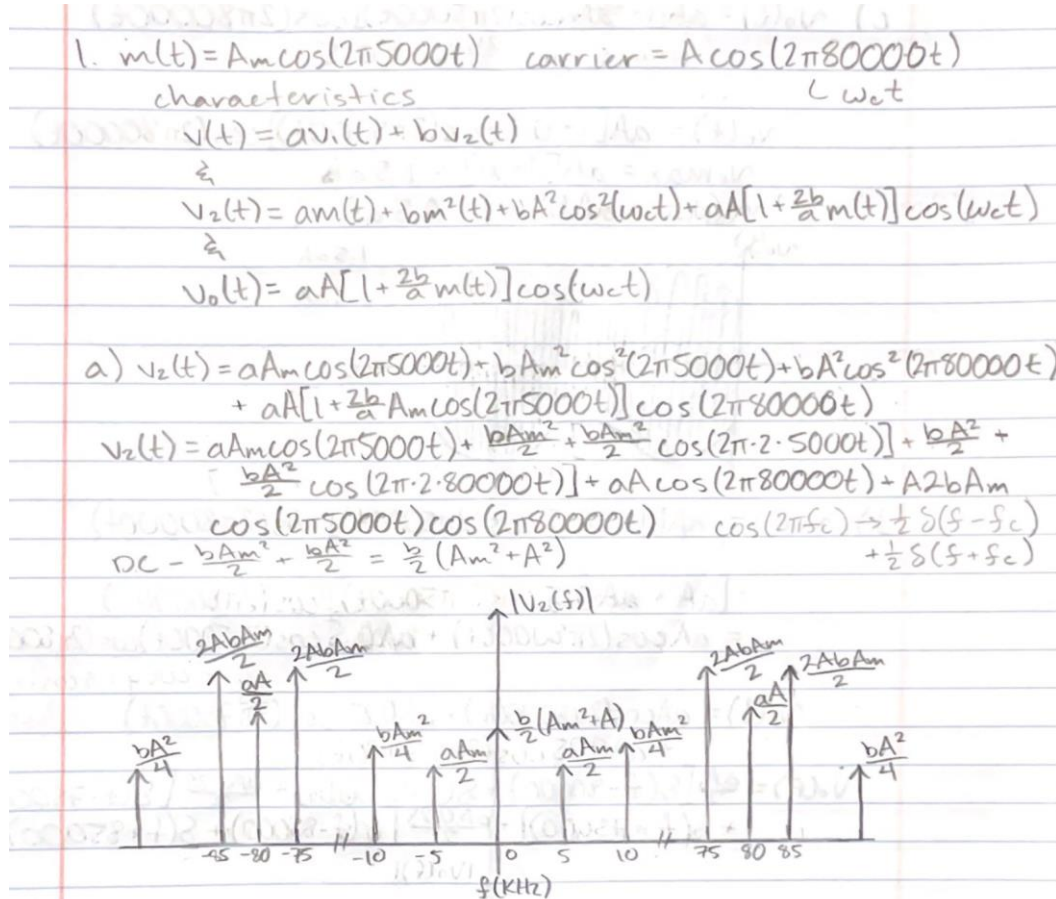 1. m(t) = Am cos(2π5000t) carrier = A cos(2π80000t)
characteristics ↳ ωct
v(t) = av₁(t) + bv₂(t)
&
v₂(t) = am(t) + bm²(t) + bA²cos²(ωct) + aA[1 + 2b/a m(t)] cos(ωct)
&
v₀(t) = aA[1 + 2b/a m(t)] cos(ωct)
a) v₂(t) = aAm cos(2π5000t) + bAm² cos²(2π5000t) + bA² cos²(2π80000t)
+ aA[1 + 2b/a Am cos(2π5000t)] cos(2π80000t)
v₂(t) = aAm cos(2π5000t) + bAm²/2 + bAm²/2 cos(2π·2·5000t)] + bA²/2 +
bA²/2 cos(2π·2·80000t)] + aA cos(2π80000t) + A2bAm
cos(2π5000t) cos(2π80000t) cos(2πfc) → ½ δ(f - fc)
DC - bAm²/2 + bA²/2 = b/2 (Am² + A²) + ½ δ(f + fc)
|V₂(f)|
2AbAm/2 2AbAm/2 2AbAm/2 2AbAm/2
aA/2 b/2 (Am² + A) aA/2
bA²/4 bAm²/4 aAm/2 aAm/2 bAm²/4 bA²/4
-85 -80 -75 // -10 -5 0 5 10 // 75 80 85
f(KHz)